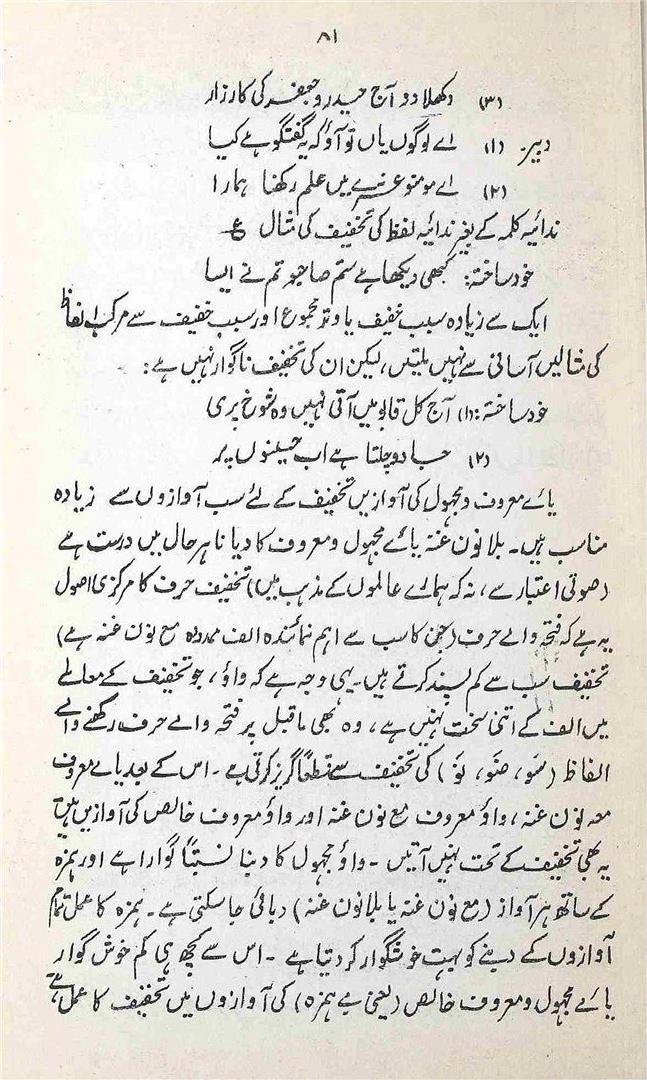 ۸۱
(۳) دکھلا دو آج حیدر و جعفر کی کارزار
دبیر۔ (۱) اے لوگوں یاں تو آؤ کہ یہ گفتگو ہے کیا
(۲) اے مومنو عزے میں علم رکھنا ہمارا
ندائیہ کلمہ کے بغیر ندائیہ لفظ کی تخفیف کی مثال ع
خود ساختہ: کبھی دیکھا ہے ستم صاحبو تم نے ایسا
ایک سے زیادہ سبب خفیف یا وتد مجموع اور سبب خفیف سے مرکب الفاظ
کی مثالیں آسانی سے نہیں ملتیں، لیکن ان کی تخفیف ناگوار نہیں ہے:
خود ساختہ: (۱) آج کل قابو میں آتی نہیں وہ شوخ پری
(۲) جادو چلتا ہے اب حسینوں پر
یائے معروف و مجہول کی آوازیں تخفیف کے لئے سب آوازوں سے زیادہ
مناسب ہیں۔ بلا نون غنہ یائے مجہول و معروف کا دبانا ہر حال میں درست ہے
(صوتی اعتبار سے، نہ کہ ہمارے عالموں کے مذہب میں) تخفیف حرف کا مرکزی اصول
یہ ہے کہ فتحہ والے حرف (جن کا سب سے اہم نمائندہ الف ممدودہ مع نون غنہ ہے)
تخفیف سب سے کم پسند کرتے ہیں۔ یہی وجہ ہے کہ واؤ، جو تخفیف کے معاملے
میں الف کے اتنا سخت نہیں ہے، وہ بھی ماقبل پر فتحہ والے حرف رکھنے والے
الفاظ (سَو، ضَو، نَو) کی تخفیف سے قطعاً گریز کرتی ہے۔ اس کے بعد یائے معروف
معہ نون غنہ، واؤ معروف مع نون غنہ اور واؤ معروف خالص کی آوازیں ہیں
یہ بھی تخفیف کے تحت نہیں آتیں۔ واؤ مجہول کا دبنا نسبتاً گوارا ہے اور ہمزہ
کے ساتھ ہر آواز (مع نون غنہ یا بلا نون غنہ) دبائی جا سکتی ہے۔ ہمزہ کا عمل تمام
آوازوں کے دبنے کو بہت خوشگوار کر دیتا ہے۔ اس سے کچھ ہی کم خوش گوار
یائے مجہول و معروف خالص (یعنی بے ہمزہ) کی آوازوں میں تخفیف کا عمل ہے